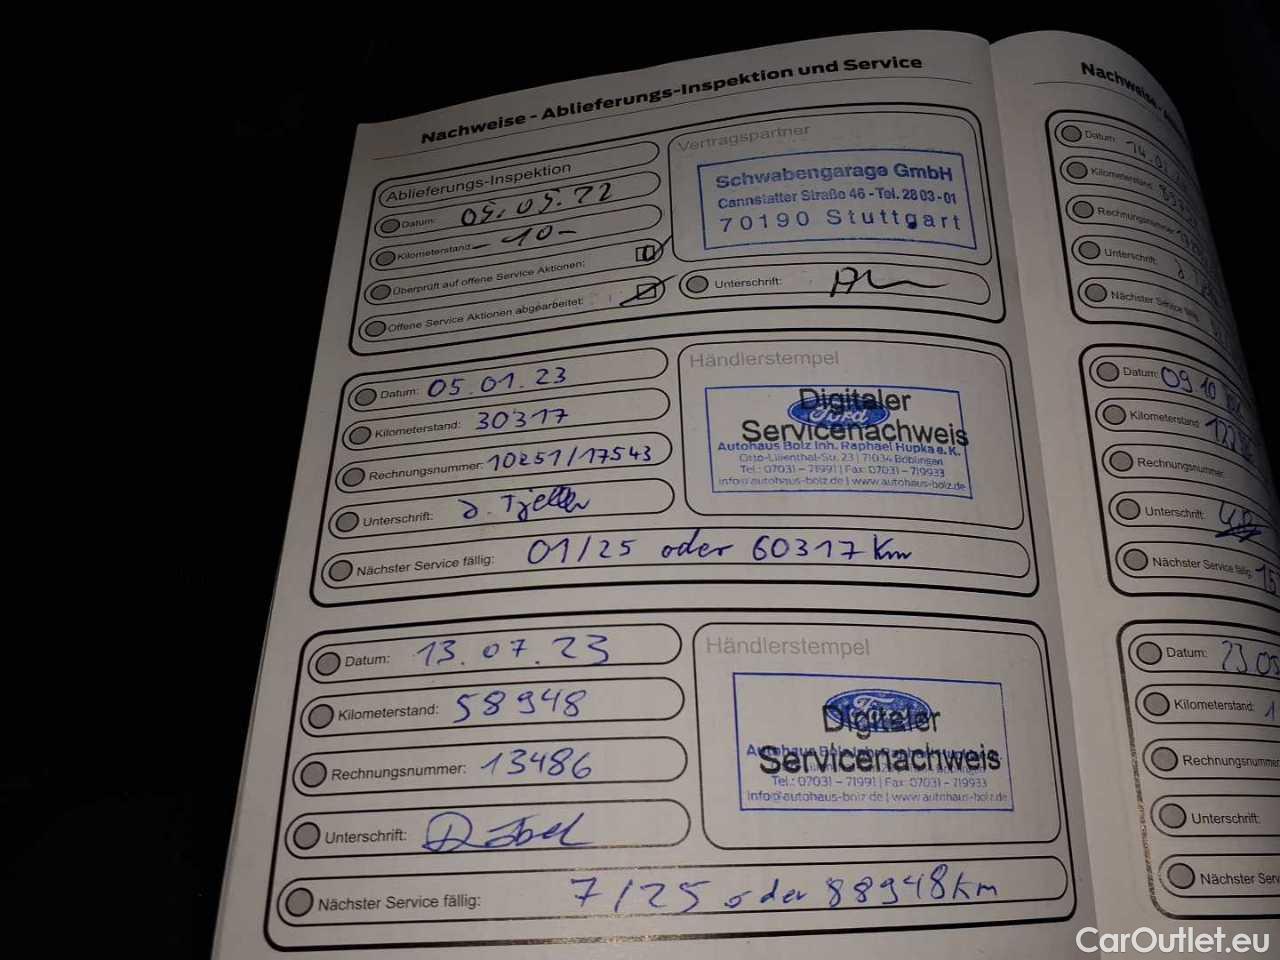 Nachweise - Ablieferungs-Inspektion und Service
Ablieferungs-Inspektion
Datum: 05.05.22
Kilometerstand: -10-
Überprüft auf offene Service Aktionen:
Offene Service Aktionen abgearbeitet:
Vertragspartner
Schwabengarage GmbH
Cannstatter Straße 46 - Tel. 28 03-01
70190 Stuttgart
Unterschrift:
Datum: 05.01.23
Kilometerstand: 30317
Rechnungsnummer: 10251/17543
Unterschrift:
Nächster Service fällig: 01/25 oder 60317 Km
Händlerstempel
Ford
Digitaler
Servicenachweis
Autohaus Bolz Inh. Raphael Hupka e.K.
Otto-Lilienthal-Str. 23 | 71034 Böblingen
Tel.: 07031 - 71991 | Fax: 07031 - 719933
info@autohaus-bolz.de | www.autohaus-bolz.de
Datum: 13.07.23
Kilometerstand: 58948
Rechnungsnummer: 13486
Unterschrift:
Nächster Service fällig: 7/25 oder 88948 km
Händlerstempel
Digitaler
Servicenachweis
Tel.: 07031 - 71991 | Fax: 07031 - 719933
info@autohaus-bolz.de | www.autohaus-bolz.de
Nachweise -
Datum:
Kilometerstand:
Rechnungsnummer:
Unterschrift:
Nächster Service fällig:
Datum: 09.10
Kilometerstand:
Rechnungsnummer:
Unterschrift:
Nächster Service fällig:
Datum: 23.05
Kilometerstand: 1
Rechnungsnummer
Unterschrift:
Nächster Serv
CarOutlet.eu